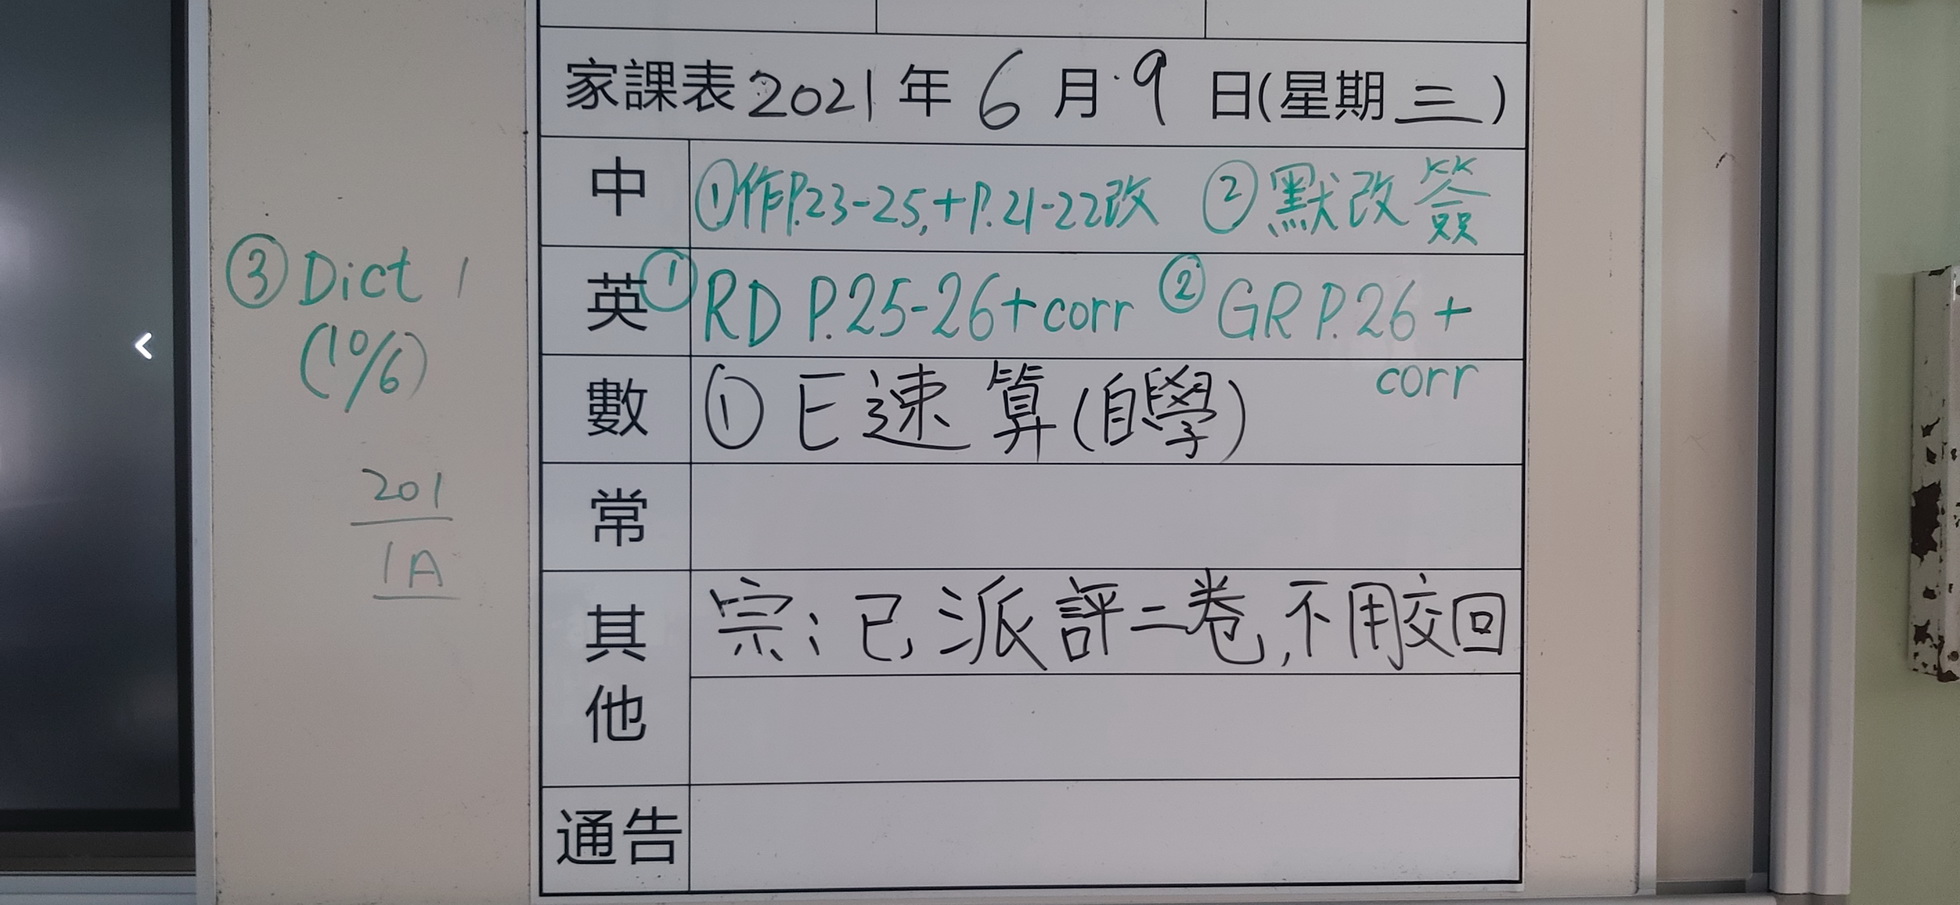 家課表2021年 6月9日(星期三)
中 ①作P.23-25,+P.21-22改 ②默改簽
英 ①RD P.25-26+corr ②GR P.26+
corr
③Dict 1
(10/6)
數 ①E速算(自學)
201
1A
常
其他 宗:已派評二卷,不用交回
通告